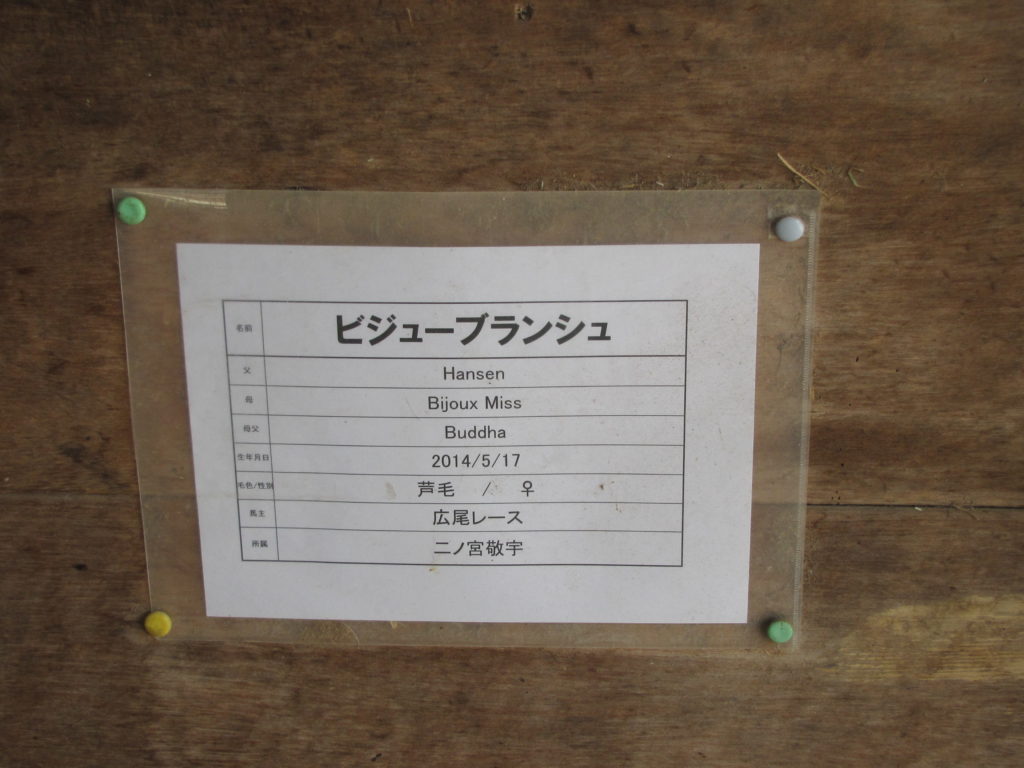 名前 ビジューブランシュ
父 Hansen
母 Bijoux Miss
母父 Buddha
生年月日 2014/5/17
毛色/性別 芦毛 / ♀
馬主 広尾レース
所属 二ノ宮敬宇